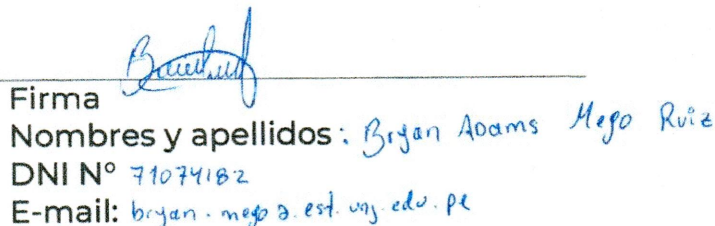 Firma
Nombres y apellidos: Bryan Adams Mego Ruiz
DNI N° 71074182
E-mail: bryan.mego@est.unj.edu.pe